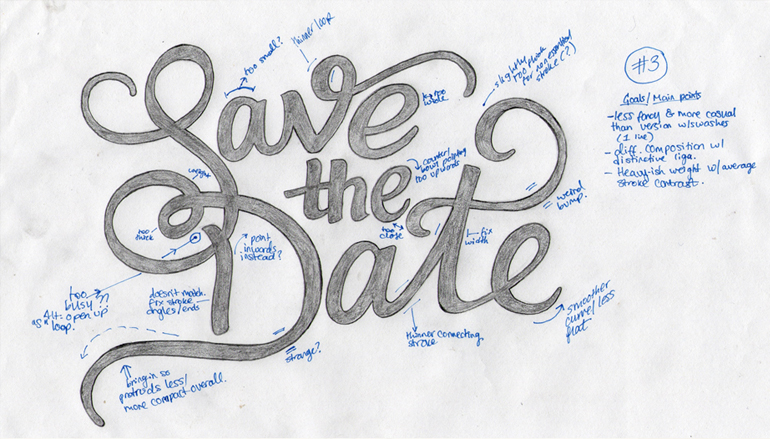 Save
the
Date
too small?
thinner loop
too
wide
slightly
too thick
for non essential
stroke(?)
#3
Goals/Main points
-less fancy & more casual
than version w/swashes
(1 line)
- diff. composition w/
distinctive liga.
- Heavy-ish weight w/ average
stroke contrast.
weight
counter/
bowl pointing
too upwards
weird
bump.
too
thick
point
inwards
instead?
too
close
fix
width
too
busy??
Alt= open up
as loop.
doesn't match.
fix stroke
angles/ends
thinner connecting
stroke.
smoother
curve/less
flat
strange?
bring in so
protrudes less/
more compact overall.